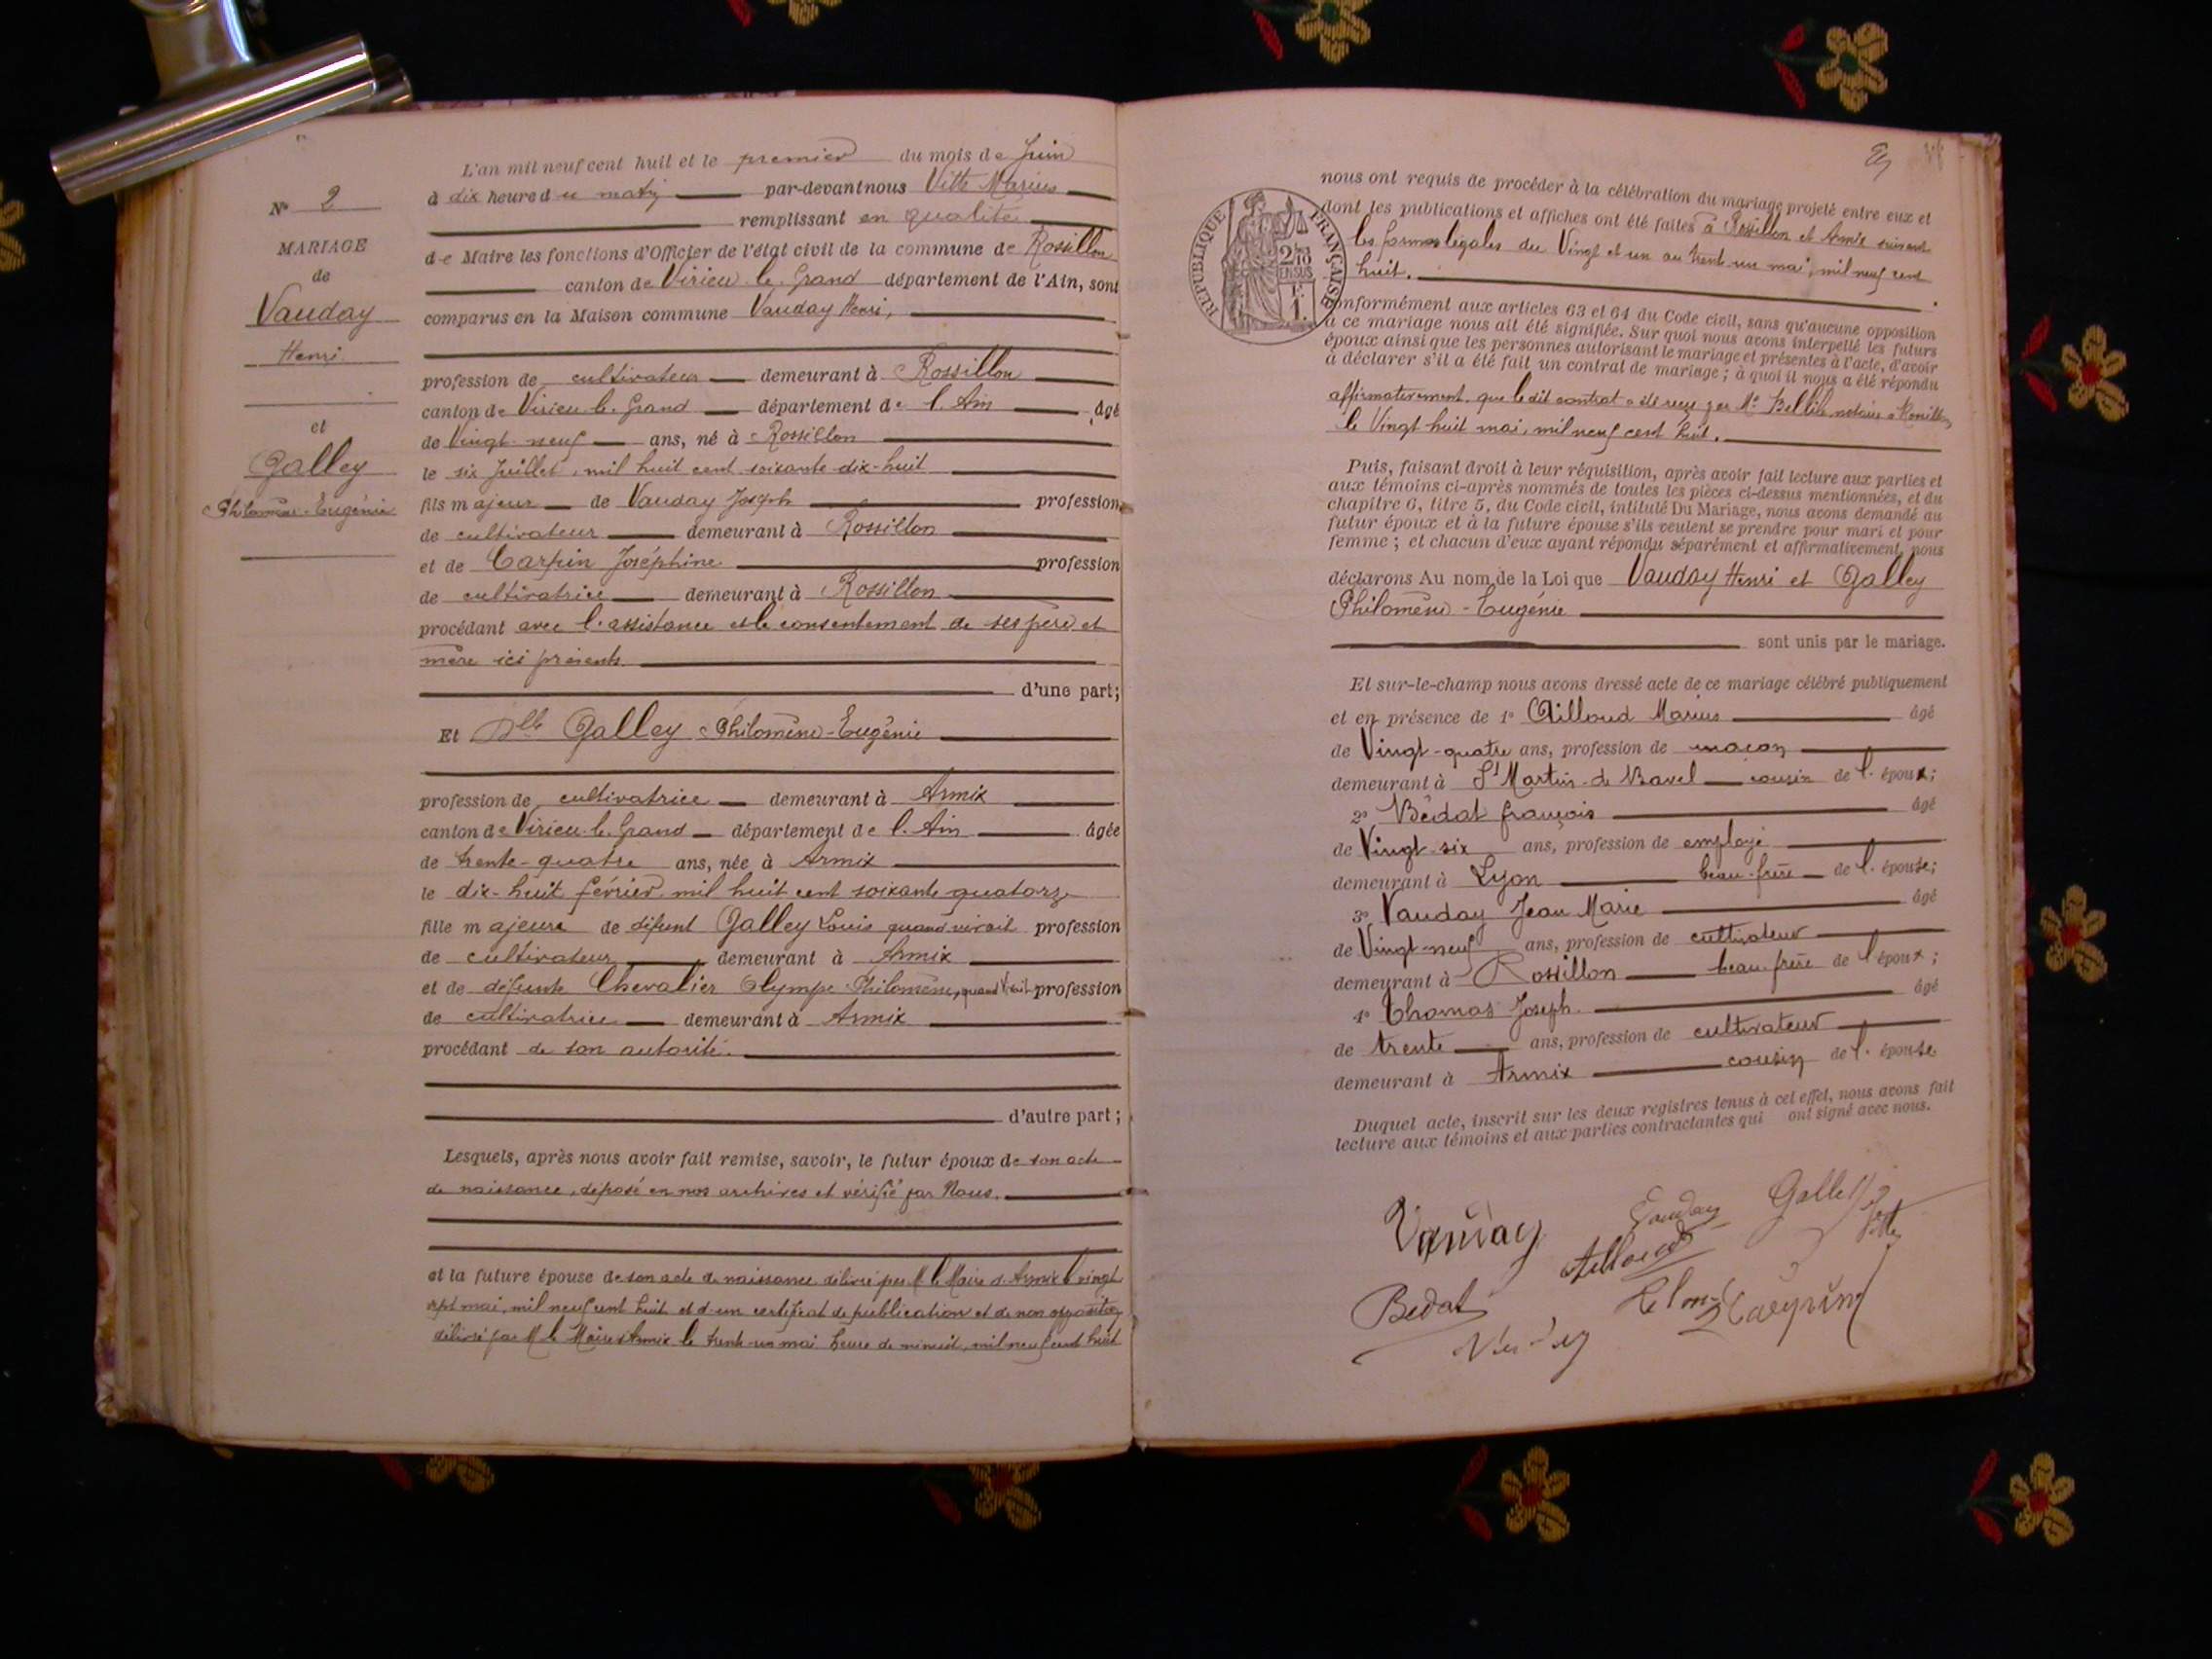 L'an mil neuf cent huit et le premier du mois de Juin
à dix heure du matin par-devant nous Vitte Marius
remplissant en qualité
de Maire les fonctions d'Officier de l'état civil de la commune de Rossillon
canton de Virieu-le-Grand département de l'Ain, sont
comparus en la Maison commune Vauday Henri,
profession de cultivateur demeurant à Rossillon
canton de Virieu-le-Grand département de l'Ain âgé
de Vingt-neuf ans, né à Rossillon
le six Juillet, mil huit cent soixante-dix-huit
fils majeur de Vauday Joseph profession
de cultivateur demeurant à Rossillon
et de Carpin Joséphine profession
de cultivatrice demeurant à Rossillon
procédant avec l'assistance et le consentement de ses père et
mère ici présents.
d'une part;
Et Dlle Galley Philomène-Eugénie
profession de cultivatrice demeurant à Armix
canton de Virieu-le-Grand département de l'Ain âgée
de trente-quatre ans, née à Armix
le dix-huit février mil huit cent soixante quatorze
fille majeure de défunt Galley Louis quand vivait profession
de cultivateur demeurant à Armix
et de défunte Chevalier Olympe Philomène, quand vivait profession
de cultivatrice demeurant à Armix
procédant de son autorité.
d'autre part;
Lesquels, après nous avoir fait remise, savoir, le futur époux de son acte
de naissance, déposé en nos archives et vérifié par Nous.
et la future épouse de son acte de naissance délivré par M le Maire d'Armix le vingt
sept mai, mil neuf cent huit et d'un certificat de publication et de non opposition
délivré par M le Maire d'Armix le trente-un mai heure de minuit, mil neuf cent huit
N° 2
MARIAGE
de
Vauday
Henri
et
Galley
Philomène-Eugénie
RÉPUBLIQUE FRANÇAISE
2/10
EN SUS
1F.
nous ont requis de procéder à la célébration du mariage projeté entre eux et
dont les publications et affiches ont été faites à Rossillon et Armix suivant
les formes légales du Vingt et un au trente un mai, mil neuf cent
huit.
conformément aux articles 63 et 64 du Code civil, sans qu'aucune opposition
à ce mariage nous ait été signifiée. Sur quoi nous avons interpellé les futurs
époux ainsi que les personnes autorisant le mariage et présentes à l'acte, d'avoir
à déclarer s'il a été fait un contrat de mariage; à quoi il nous a été répondu
affirmativement, que le dit contrat a été reçu par Me notaire à
le Vingt huit mai, mil neuf cent huit.
Puis, faisant droit à leur réquisition, après avoir fait lecture aux parties et
aux témoins ci-après nommés de toutes les pièces ci-dessus mentionnées, et du
chapitre 6, titre 5, du Code civil, intitulé Du Mariage, nous avons demandé au
futur époux et à la future épouse s'ils veulent se prendre pour mari et pour
femme; et chacun d'eux ayant répondu séparément et affirmativement, nous
déclarons Au nom de la Loi que Vauday Henri et Galley
Philomène-Eugénie
sont unis par le mariage.
Et sur-le-champ nous avons dressé acte de ce mariage célébré publiquement
et en présence de 1° Ailloud Marius âgé
de Vingt-quatre ans, profession de maçon
demeurant à St Martin-de-Bavel cousin de l'époux;
2° Bédat françois âgé
de Vingt-six ans, profession de employé
demeurant à Lyon beau-frère de l'épouse;
3° Vauday Jean Marie âgé
de Vingt-neuf ans, profession de cultivateur
demeurant à Rossillon beau-frère de l'époux;
4° Thomas Joseph âgé
de trente ans, profession de cultivateur
demeurant à Armix cousin de l'épouse
Duquel acte, inscrit sur les deux registres tenus à cet effet, nous avons fait
lecture aux témoins et aux parties contractantes qui ont signé avec nous.
Vauday Vauday Galley
Ailloud Vitte
Bedat Carpin